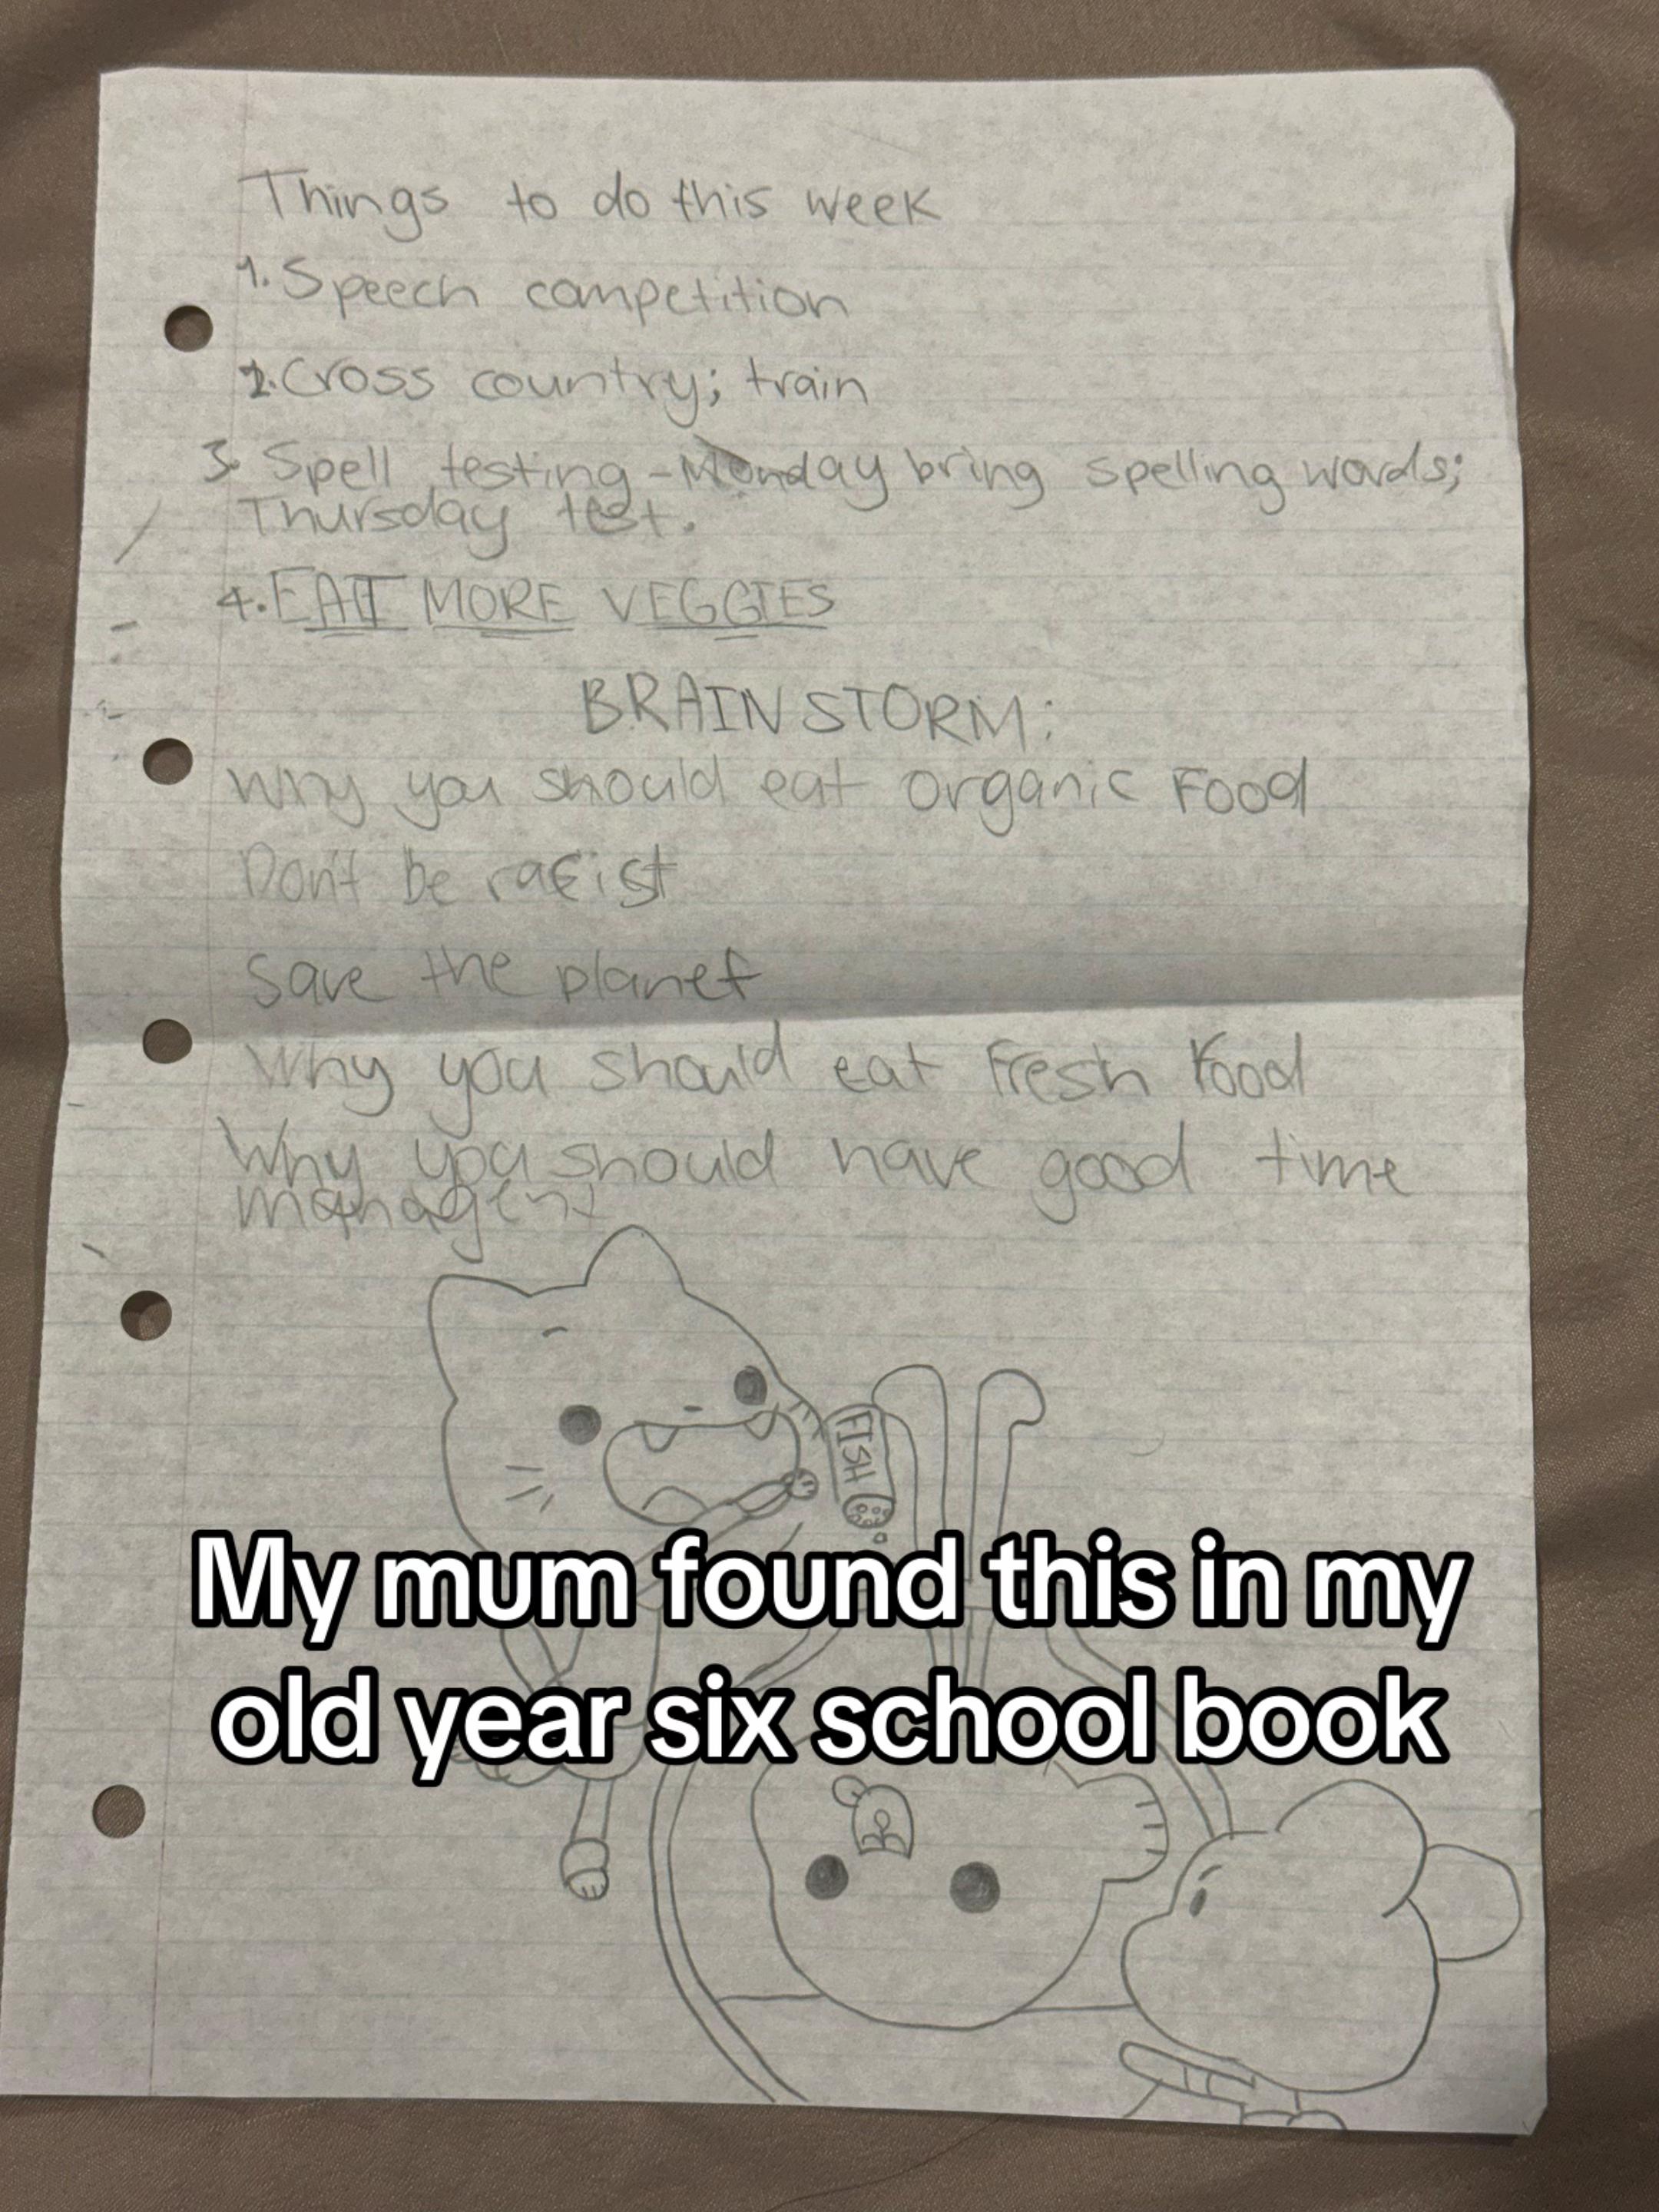 Things to do this week
1. Speech competition
2. Cross country; train
3. Spell testing - Monday bring spelling words;
Thursday test.
4. EAT MORE VEGGIES
BRAINSTORM:
Why you should eat organic Food
Don't be racist
Save the planet
Why you should eat Fresh Food
Why you should have good time
managent
FISH
My mum found this in my
old year six school book